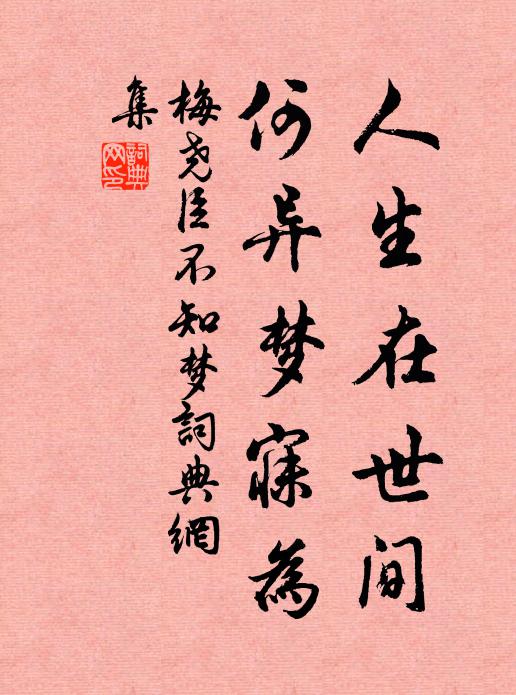 人生在世间
何异梦寐为
梅尧臣不知梦詞典網
集
詞典
网印